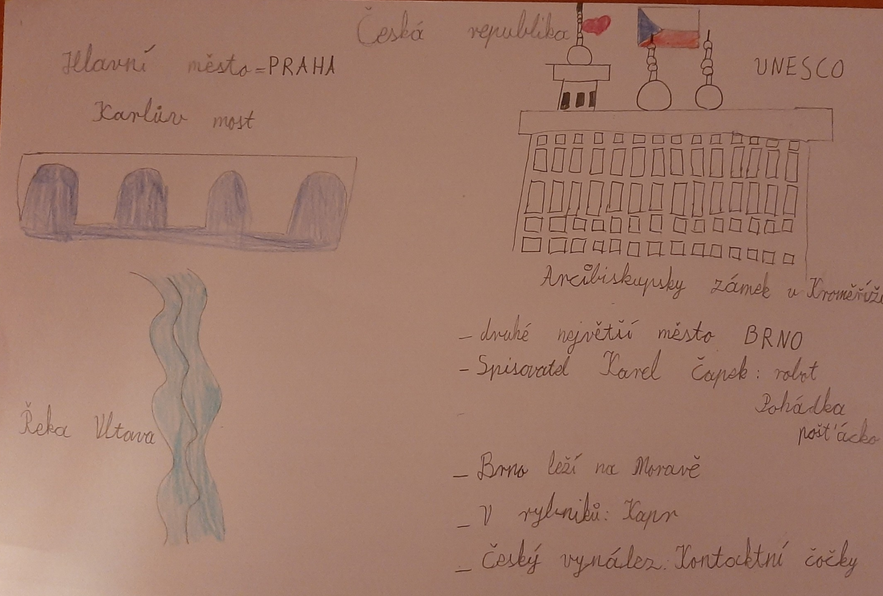 Česká republika
Hlavní město = PRAHA
UNESCO
Karlův most
Arcibiskupsky zámek v Kroměříže
- druhé největší město BRNO
- Spisovatel Karel Čapek: robot
Pohádka
pošťácko
Řeka Vltava
- Brno leží na Moravě
- V rybniků: Kapr
- Český vynález: Kontaktní čočky